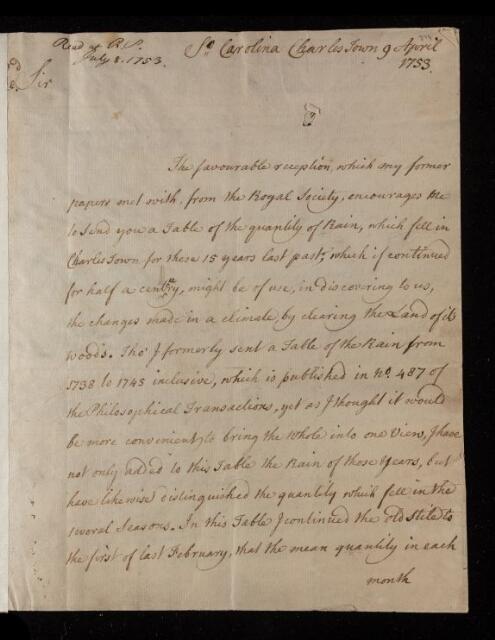 Read at R.S.
July 5. 1753.
So. Carolina Charles Town 9 April
1753.
Sir
The favourable reception, which my former
papers met with, from the Royal Society, encourages me
to send you a Table of the quantity of Rain, which fell in
Charles Town for these 15 years last past, which if continued
for half a century, might be of use, in discovering to us,
the changes made in a climate, by clearing the Land of its
woods. Tho' I formerly sent a Table of the Rain from
1738 to 1748 inclusive, which is published in No. 487 of
the Philosophical Transactions, yet as I thought it would
be more convenient, to bring the whole into one View, I have
not only added to this Table the Rain of those Years, but
have likewise distinguished the quantity which fell in the
several Seasons. In this Table I continued the old stile to
the first of last February, that the mean quantity in each
month